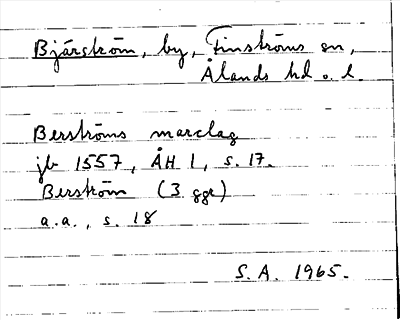 Bjärström, by, Finströms sn,
Ålands hd o. l.
Berströms marclag
jb 1557, ÅH 1, s. 17.
Berström (3 ggr)
a.a., s. 18
S.A. 1965.